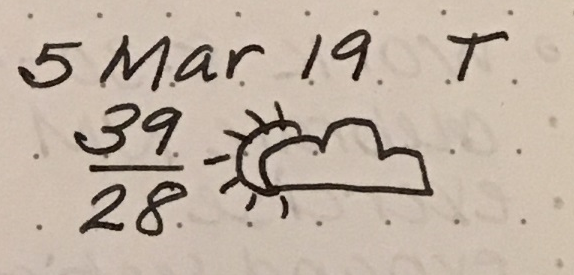 5 Mar 19 T
39
28